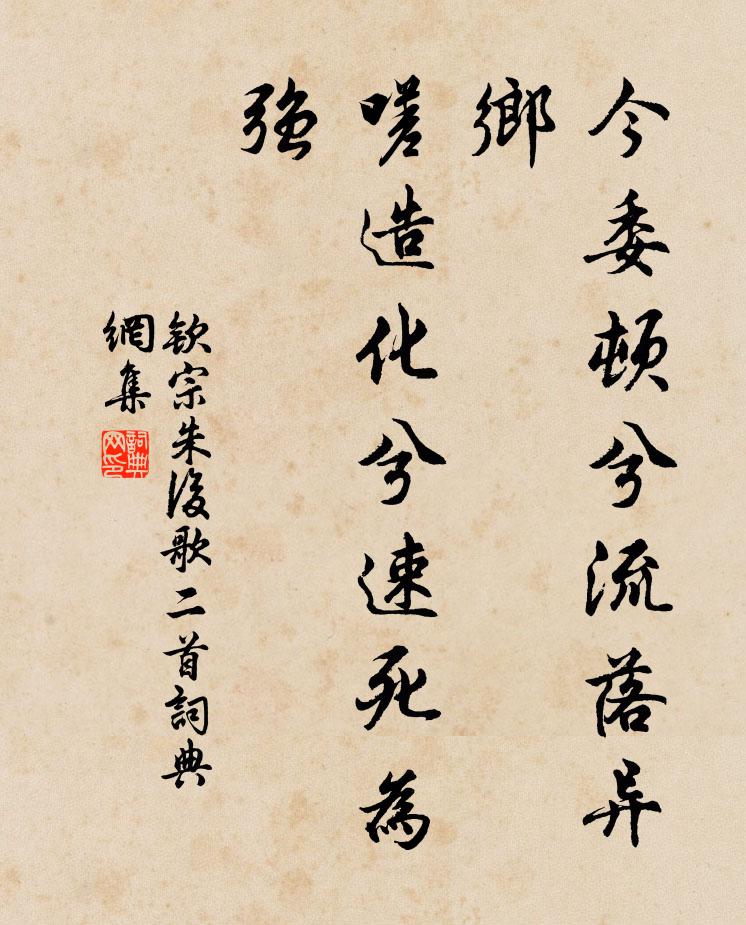 今委頓兮流落异
鄉
嗟造化兮速死為
強
欽宗朱後歌二首詞典
網集
詞典
网印